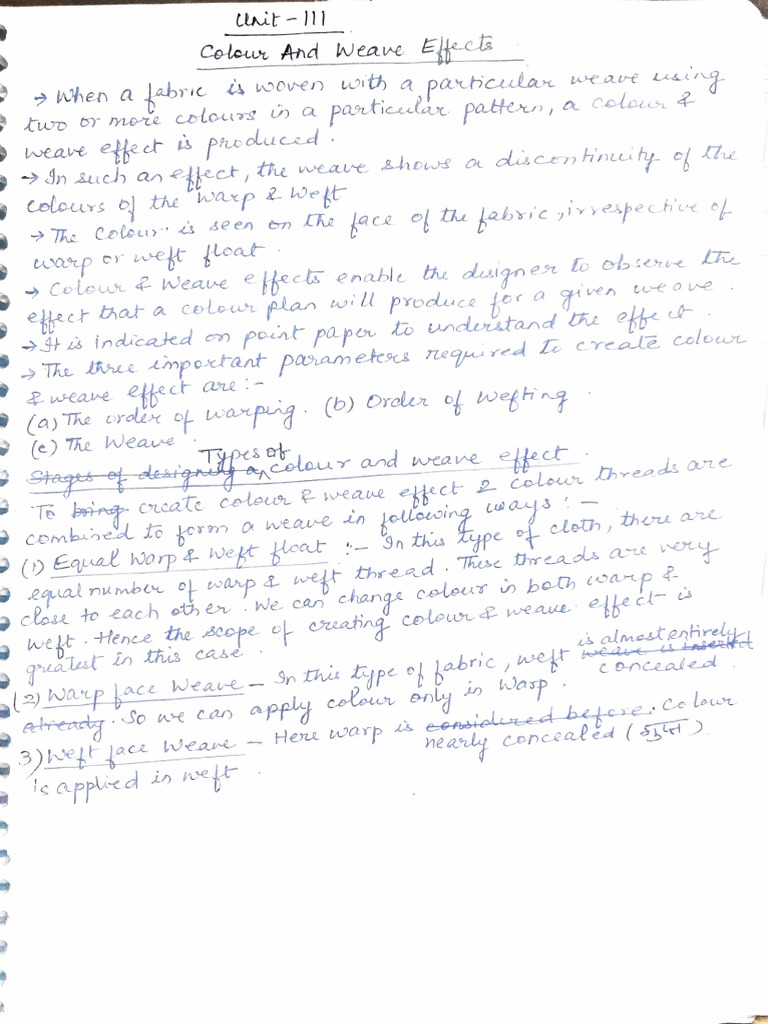 Unit - III
Colour And Weave Effects
→ When a fabric is woven with a particular weave using
two or more colours in a particular pattern, a colour &
weave effect is produced.
→ In such an effect, the weave shows a discontinuity of the
colours of the Warp & Weft
→ The Colour is seen on the face of the fabric, irrespective of
warp or weft float.
→ Colour & Weave effects enable the designer to observe the
effect that a colour plan will produce for a given weave.
→ It is indicated on point paper to understand the effect.
→ The three important parameters required to create colour
& weave effect are :-
(a) The order of warping. (b) Order of Wefting.
(c) The Weave.
Types of
Stages of designing a colour and weave effect.
To bring create colour & weave effect 2 colour threads are
combined to form a weave in following ways : -
(1) Equal Warp & Weft float :- In this type of cloth, there are
equal number of warp & weft thread. These threads are very
close to each other. We can change colour in both warp &
weft. Hence the scope of creating colour & weave effect is
greatest in this case.
is almost entirely
(2) Warp face Weave - In this type of fabric, weft weave is insert
concealed.
already. So we can apply colour only in Warp.
3) Weft face Weave - Here warp is considered before. Colour
nearly concealed
is applied in weft.